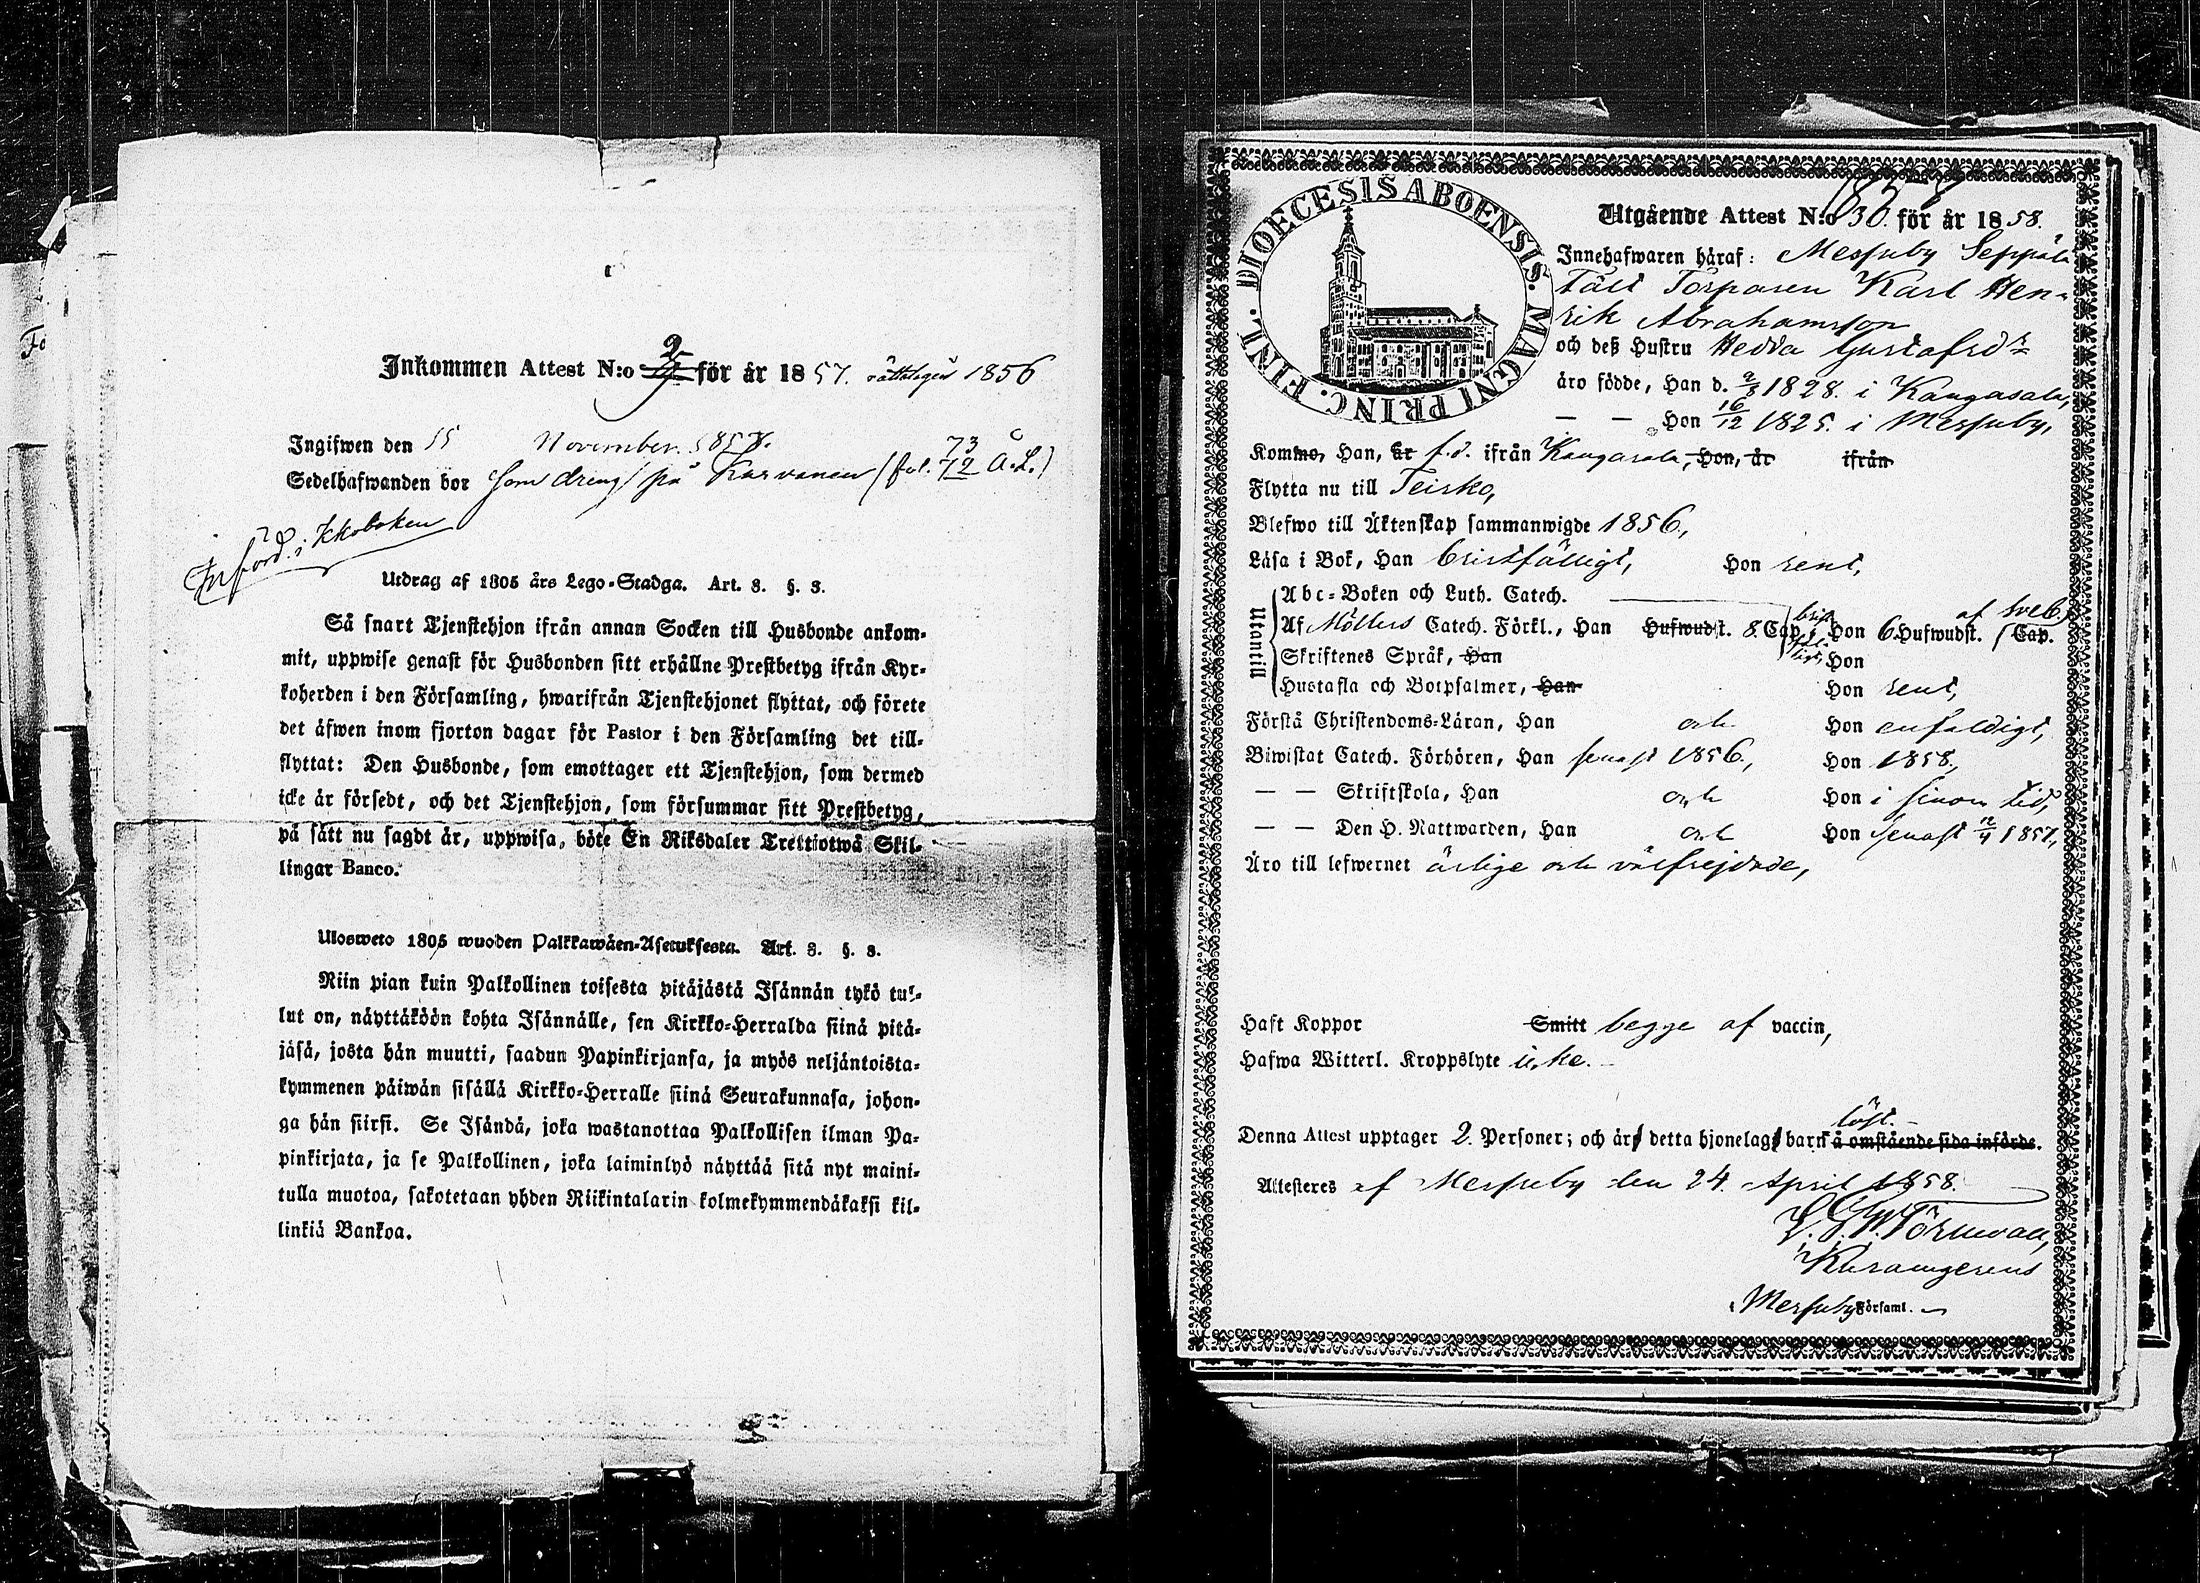 Inkommen Attest N:o 2 för år 1857. rätteligen 1856
Ingifwen den 15 November 1857.
Sedelhafwanden bor som dreng på Karvanen (fol. 73 72 A.L.)
Införd i Kkoboken
Utdrag af 1805 års Lego-Stadga. Art. 3. §. 3.
Så snart Tjenstehjon ifrån annan Socken till Husbonde ankom-
mit, uppwise genast för Husbonden sitt erhållne Prestbetyg ifrån Kyr-
koherden i den Församling, hwarifrån Tjenstehjonet flyttat, och förete
det äfwen inom fjorton dagar för Pastor i den Församling det till-
flyttat: Den Husbonde, som emottager ett Tjenstehjon, som dermed
icke är försedt, och det Tjenstehjon, som försummar sitt Prestbetyg,
på sätt nu sagdt är, uppwisa, böte En Riksdaler Trettiotwå Skil-
lingar Banco.
Ulosweto 1805 wuoden Palkkawäen-Asetuksesta. Art. 3. §. 3.
Niin pian kuin Palkollinen toisesta pitäjästä Isännän tykö tul-
lut on, näyttäköön kohta Isännälle, sen Kirkko-Herralda siinä pitä-
jäsä, josta hän muutti, saadun Papinkirjansa, ja myös neljäntoista-
kymmenen päiwän sisällä Kirkko-Herralle siinä Seurakunnasa, johon-
ga hän siirsi. Se Isändä, joka wastanottaa Palkollisen ilman Pa-
pinkirjata, ja se Palkollinen, joka laiminlyö näyttää sitä nyt maini-
tulla muotoa, sakotetaan yhden Riikintalarin kolmekymmendäkaksi kil-
linkiä Bankoa.
DIOECESIS ABOENSIS. MAGNI PRINC. FINL.
Utgående Attest N:o 30. för år 1858.
Innehafwaren häraf: Messuby Seppälä
Täst Torparen Karl Hen-
rik Abrahamsson
och deß Hustru Hedda Gustafsdr
äro födde, Han d. 2/3 1828. i Kangasala,
— — Hon 16/12 1825. i Messuby,
Kommo, Han, är f.d. ifrån Kangasala, Hon, är ifrån
Flytta nu till Teisko,
Blefwo till Äktenskap sammanwigde 1856,
Läsa i Bok, Han bristfälligt, Hon rent,
Utantill
Abc-Boken och Luth. Catech.
Af Möllers Catech. Förkl., Han Hufwudst. 8. Cap. bristfälligt, Hon 6. Hufwudst. af Sveb. Cap.
Skriftenes Språk, Han Hon
Hustafla och Botpsalmer, Han Hon rent,
Förstå Christendoms-Läran, Han och Hon enfaldigt,
Biwistat Catech. Förhören, Han senast 1856., Hon 1858.,
— — Skriftskola, Han och Hon i sinom tid,
— — Den H. Nattwarden, Han och Hon senast 12/4 1857,
Äro till lefwernet ärlige och välfrejdade,
Haft Koppor Smitt begge af vaccin,
Hafwa Witterl. Kroppslyte icke.
Denna Attest upptager 2. Personer; och är detta hjonelag barnlöst. å omstående sida införde.
Attesteres af Messuby den 24. April 1858.
Törnwall,
Messuby Församl.